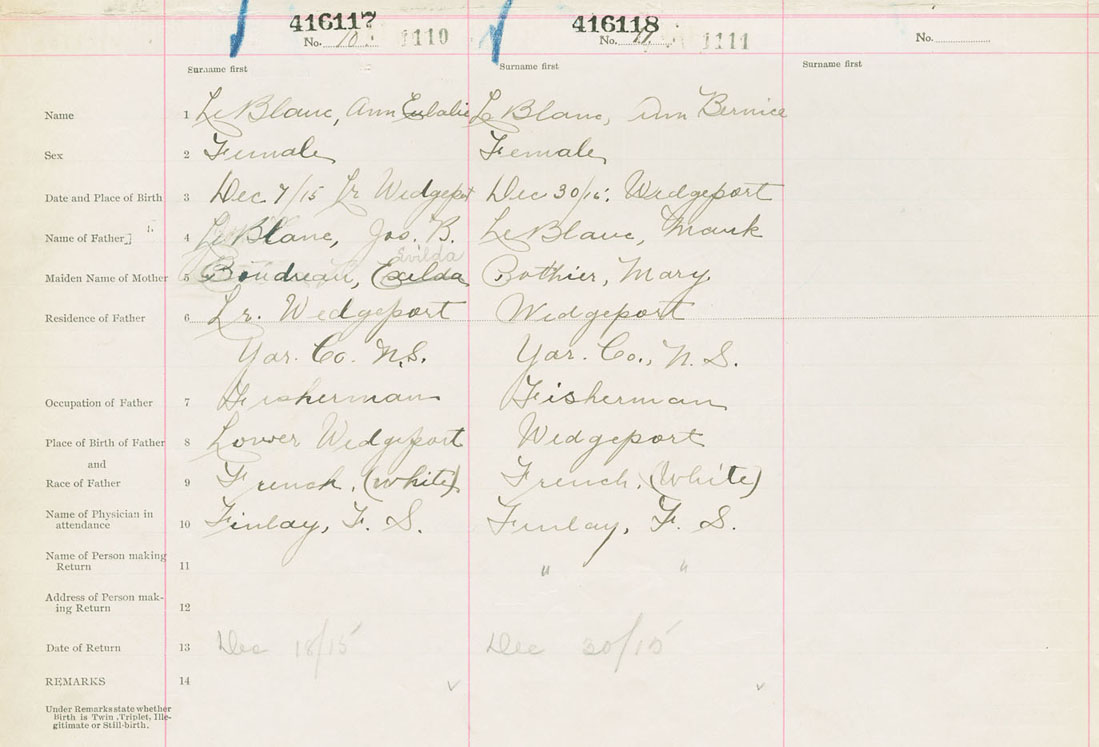 416117 416118
No. 10 1110 No. 11 1111 No.
Surname first Surname first Surname first
Name 1 LeBlanc, Ann Eulalie LeBlanc, Ann Bernice
Sex 2 Female Female
Date and Place of Birth 3 Dec 7/15 Lr Wedgeport Dec 30/15. Wedgeport
Name of Father 4 LeBlanc, Jos. B. LeBlanc, Frank
Evilda
Maiden Name of Mother 5 Boudreau, Exilda Pothier, Mary
Residence of Father 6 Lr. Wedgeport Wedgeport
Yar. Co. N.S. Yar. Co., N.S.
Occupation of Father 7 Fisherman Fisherman
Place of Birth of Father 8 Lower Wedgeport Wedgeport
and
Race of Father 9 French, (White) French, (White)
Name of Physician in
attendance 10 Finlay, F. S. Finlay, F. S.
Name of Person making
Return 11 " "
Address of Person mak-
ing Return 12
Date of Return 13 Dec 18/15 Dec 30/15
REMARKS 14
Under Remarks state whether
Birth is Twin, Triplet, Ille-
gitimate or Still-birth.